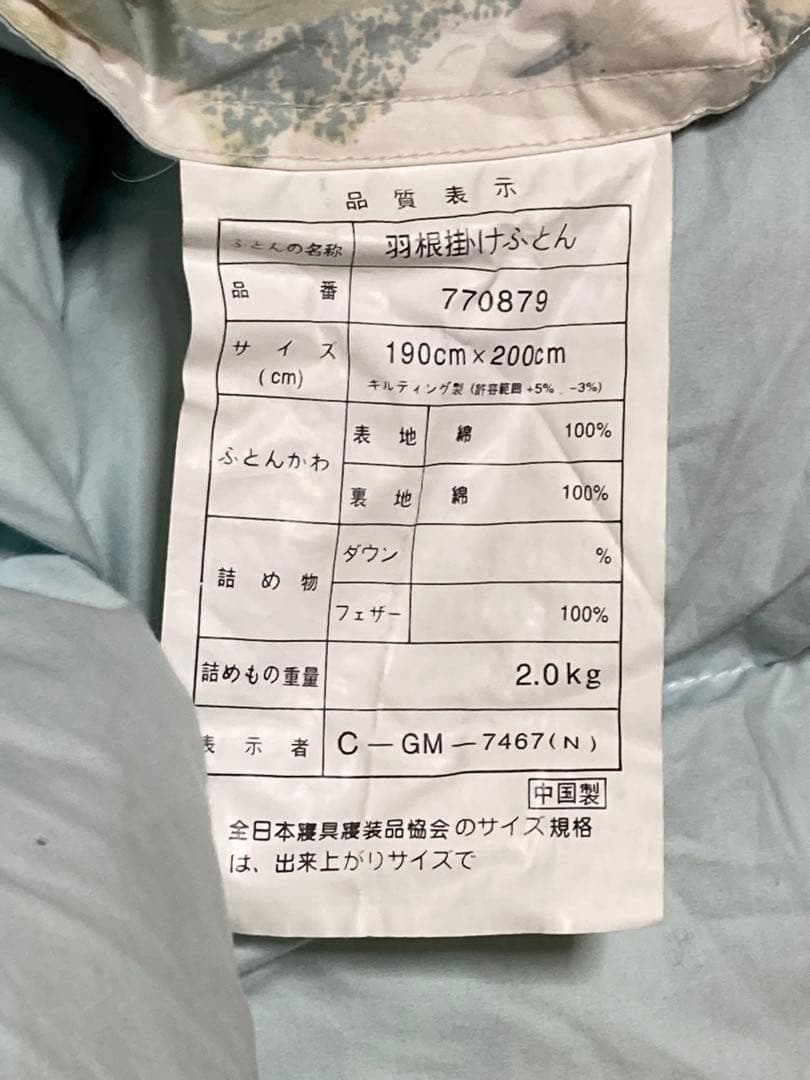 品質表示
ふとんの名称 羽根掛けふとん
品番 770879
サイズ(cm) 190cm×200cm
キルティング製(許容範囲+5% -3%)
ふとんかわ 表地 綿 100%
裏地 綿 100%
詰め物 ダウン %
フェザー 100%
詰めもの重量 2.0kg
表示者 C-GM-7467(N)
中国製
全日本寝具寝装品協会のサイズ規格
は、出来上がりサイズで